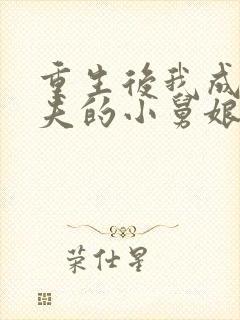 重生後我成
夫的小舅娘
荣仕星